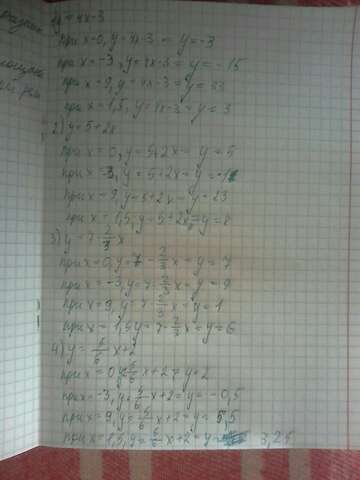 1) y = 4x-3
при x=0, y=4x-3 = y=-3
при x=-3, y=4x-3=y=-15
при x=9, y=4x-3=y=33
при x=1,5, y=4x-3=y=3
2) y=5+2x
при x=0, y=5+2x=y=5
при x=-3, y=5+2x=y=-1
при x=9, y=5+2x=y=23
при x=1,5, y=5+2x=y=8
3) y=7-2/3x
при x=0, y=7-2/3x=y=7
при x=-3, y=7-2/3x=y=9
при x=9, y=7-2/3x=y=1
при x=1,5 y=7-2/3x=y=6
4) y=5/6x+2
при x=0, y=5/6x+2=y=2
при x=-3, y=5/6x+2=y=-0,5
при x=9, y=5/6x+2=y=5,5
при x=1,5, y=5/6x+2=y= 3,25